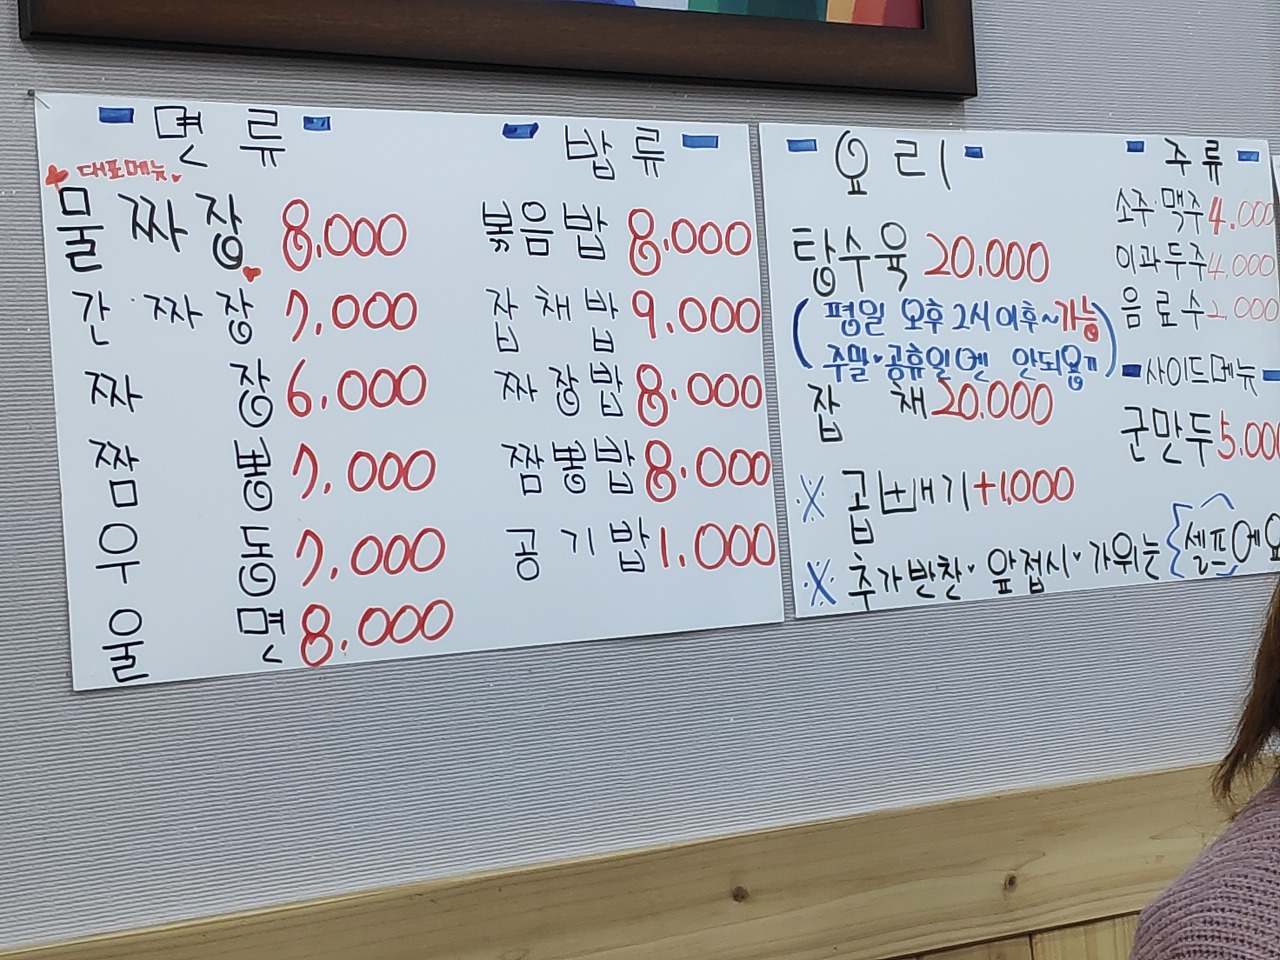 면류
대표메뉴
물짜장 8.000
간·짜장 7.000
짜장 6.000
짬뽕 7.000
우동 7.000
울면 8.000
밥류
볶음밥 8.000
잡채밥 9.000
짜장밥 8.000
짬뽕밥 8.000
공기밥 1.000
요리
탕수육 20.000
(평일 오후 2시이후~가능
주말·공휴일엔 안되욥ㅠ)
잡채 20.000
※ 곱빼기+1.000
※ 추가반찬·앞접시·가위는 셀프에요
주류
소주·맥주 4.000
이과두주 4.000
음료수 2.000
사이드메뉴
군만두 5.000